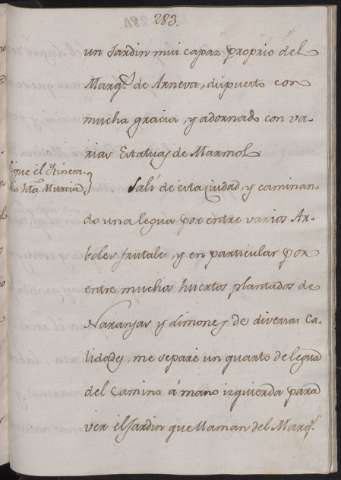 283.
un Jardin mui capaz proprio del
Marq.s de Arneva, dispuesto con
mucha gracia, y adornado con va-
rias Estatuas de Marmol
que el Itinera-
hta Murcia
Salí de esta ciudad, y caminan-
do una legua por entre varios Ar-
boles frutales, y en particular por
entre muchos huertos plantados de
Naranjas y Limones de diversas Ca-
lidades, me separé un quarto de legua
del Camino á mano izquierda para
ver el Jardin que llaman del Marq.s